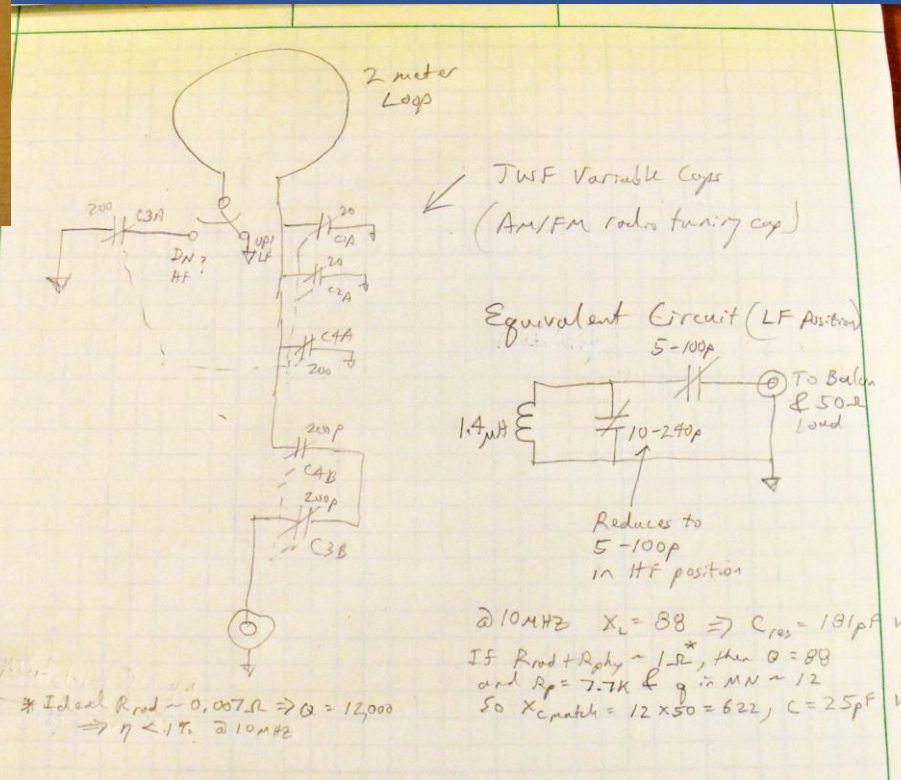 2 meter
Loop
TWF Variable Caps
(AM/FM radio tuning cap)
200
C3A
DN?
HF
UP?
LF
20
C1A
20
C2A
C4A
200
200p
C4B
200p
C3B
Equivalent Circuit (LF Position)
5-100p
To Balun
& 50Ω
Load
1.4μH
10-240p
Reduces to
5-100p
in HF position
@10MHz XL = 88 ⇒ Cres = 181pF
If Rrad + Rphy ~ 1Ω*, then Q = 88
and Rp = 7.7K & q in MN ~ 12
So XCmatch = 12 x 50 = 622, C = 25pF
* Ideal Rrad ~ 0.007Ω ⇒ Q = 12,000
⇒ η < 1% @ 10MHz